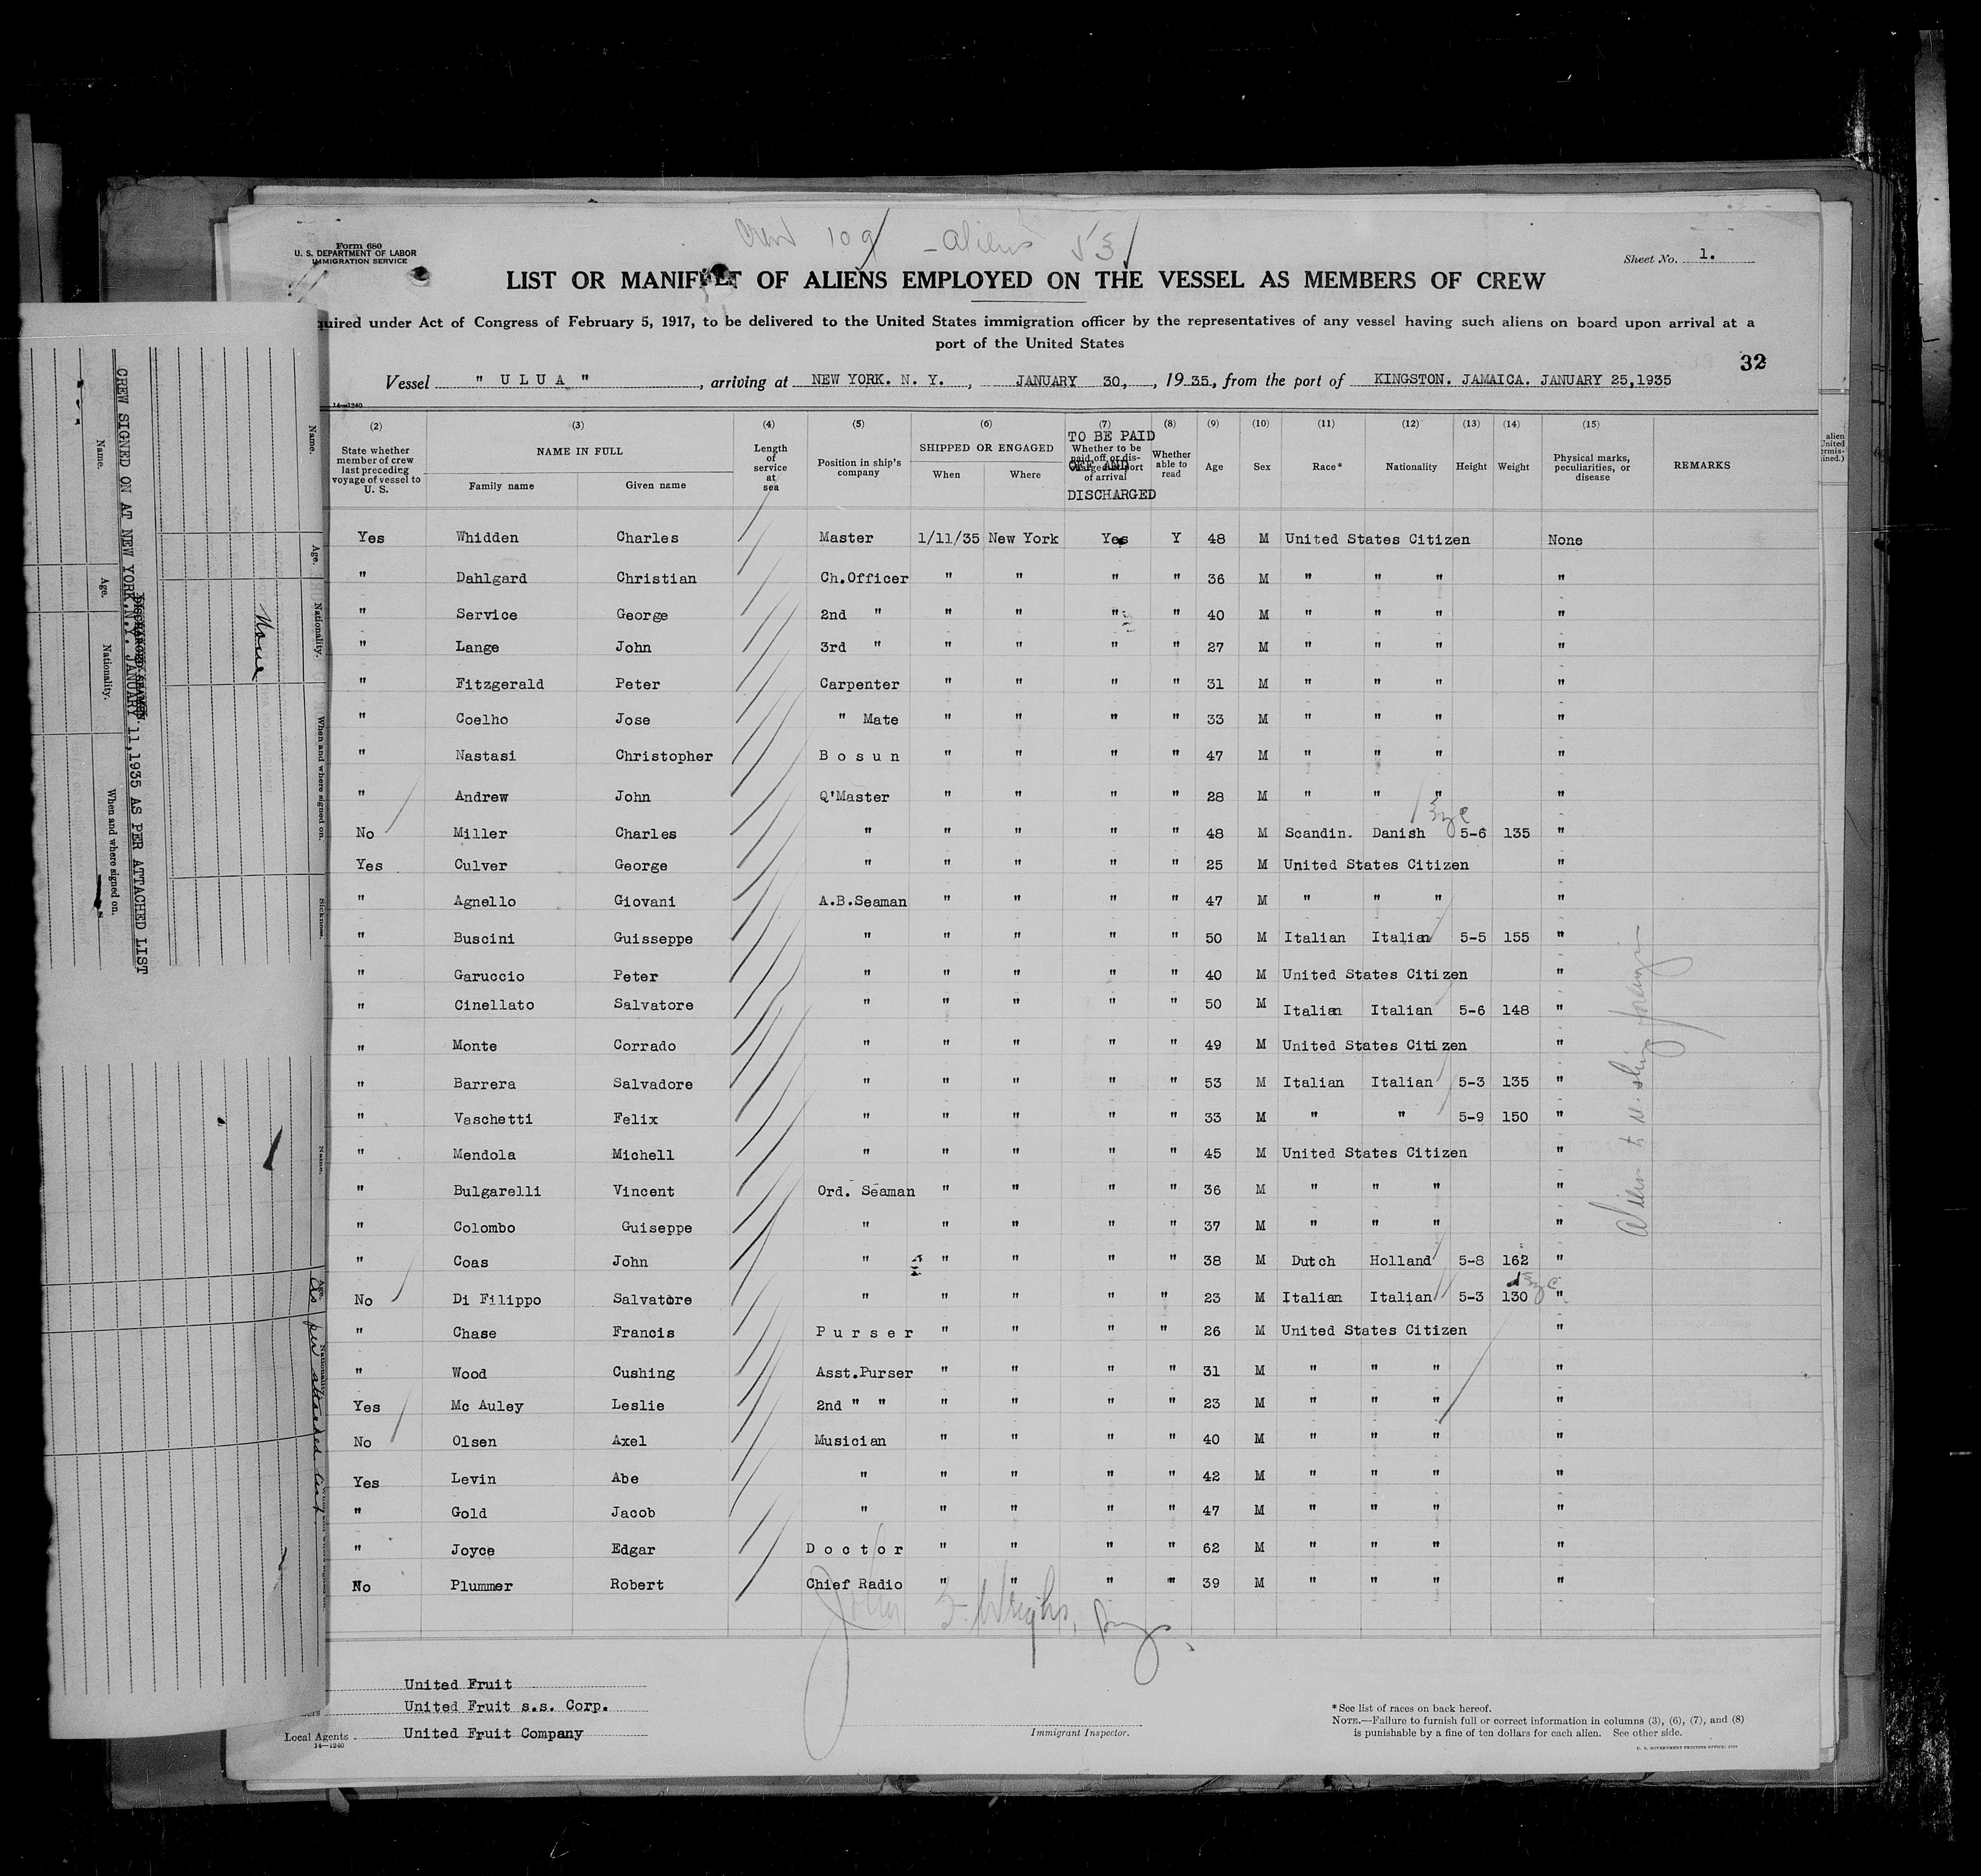 Crew 109 - aliens
Form 680
U. S. DEPARTMENT OF LABOR
IMMIGRATION SERVICE
Sheet No. 1.
LIST OR MANIFEST OF ALIENS EMPLOYED ON THE VESSEL AS MEMBERS OF CREW
quired under Act of Congress of February 5, 1917, to be delivered to the United States immigration officer by the representatives of any vessel having such aliens on board upon arrival at a
port of the United States
32
Vessel " U L U A " , arriving at NEW YORK. N. Y. , JANUARY 30, , 19 35, from the port of KINGSTON. JAMAICA. JANUARY 25,1935
14—1240
(2) (3) (4) (5) (6) (7) (8) (9) (10) (11) (12) (13) (14) (15)
State whether member of crew last preceding voyage of vessel to U. S.
NAME IN FULL
Family name Given name
Length of service at sea
Position in ship's company
SHIPPED OR ENGAGED
When Where
TO BE PAID
Whether to be paid off or discharged at port of arrival
OFF AND
DISCHARGED
Whether able to read
Age Sex Race* Nationality Height Weight
Physical marks, peculiarities, or disease
REMARKS
Yes Whidden Charles Master 1/11/35 New York Yes Y 48 M United States Citizen None
" Dahlgard Christian Ch.Officer " " " " 36 M " " " "
" Service George 2nd " " " " " 40 M " " " "
" Lange John 3rd " " " " " 27 M " " " "
" Fitzgerald Peter Carpenter " " " " 31 M " " " "
" Coelho Jose " Mate " " " " 33 M " " " "
" Nastasi Christopher B o s u n " " " " 47 M " " " "
" Andrew John Q'Master " " " " 28 M " " " "
No Miller Charles " " " " " 48 M Scandin. Danish 5-6 135 "
Yes Culver George " " " " " 25 M United States Citizen "
" Agnello Giovani A.B.Seaman " " " " 47 M " " " "
" Buscini Guisseppe " " " " " 50 M Italian Italian 5-5 155 "
" Garuccio Peter " " " " " 40 M United States Citizen "
" Cinellato Salvatore " " " " " 50 M Italian Italian 5-6 148 "
" Monte Corrado " " " " " 49 M United States Citizen "
" Barrera Salvadore " " " " " 53 M Italian Italian 5-3 135 "
" Vaschetti Felix " " " " " 33 M " " 5-9 150 "
" Mendola Michell " " " " " 45 M United States Citizen "
" Bulgarelli Vincent Ord. Seaman " " " " 36 M " " " "
" Colombo Guiseppe " " " " " 37 M " " " "
" Coas John " " " " " 38 M Dutch Holland 5-8 162 "
No Di Filippo Salvatore " " " " " 23 M Italian Italian 5-3 130 "
" Chase Francis P u r s e r " " " " 26 M United States Citizen "
" Wood Cushing Asst.Purser " " " " 31 M " " " "
Yes Mc Auley Leslie 2nd " " " " " " 23 M " " " "
No Olsen Axel Musician " " " " 40 M " " " "
Yes Levin Abe " " " " " 42 M " " " "
" Gold Jacob " " " " " 47 M " " " "
" Joyce Edgar D o c t o r " " " " 62 M " " " "
No Plummer Robert Chief Radio " " " " 39 M " " " "
United Fruit
United Fruit s.s. Corp.
Local Agents United Fruit Company
14—1240
Immigrant Inspector.
* See list of races on back hereof.
NOTE.—Failure to furnish full or correct information in columns (3), (6), (7), and (8)
is punishable by a fine of ten dollars for each alien. See other side.
CREW SIGNED ON AT NEW YORK.N.Y. JANUARY 11,1935 AS PER ATTACHED LIST
Name. Age. Nationality. When and where signed on.
Name. Age. Nationality. When and where signed on. Sickness.
None
Name. Age. Nationality.
As per attached list.